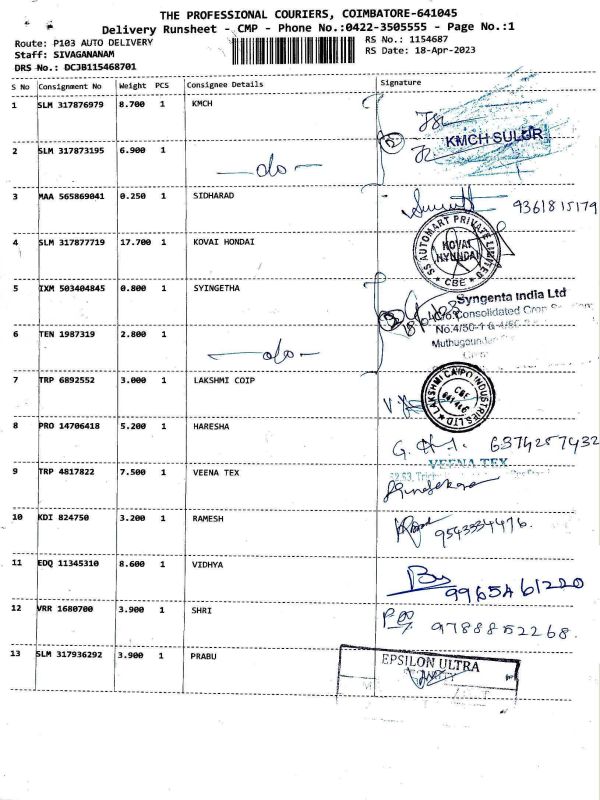 THE PROFESSIONAL COURIERS, COIMBATORE-641045
Delivery Runsheet - CMP - Phone No.:0422-3505555 - Page No.:1
Route: P103 AUTO DELIVERY RS No.: 1154687
Staff: SIVAGANANAM RS Date: 18-Apr-2023
DRS No.: DCJB115468701
S No Consignment No Weight PCS Consignee Details Signature
1 SLM 317876979 8.700 1 KMCH
KMCH SULUR
2 SLM 317873195 6.900 1
-do-
3 MAA 565869041 0.250 1 SIDHARAD 9361815179
4 SLM 317877719 17.700 1 KOVAI HONDAI
SS AUTOMART PRIVATE LIMITED
KOVAI
HYUNDAI
CBE
5 IXM 503404845 0.800 1 SYINGETHA
Syngenta India Ltd
Consolidated Crop
6 TEN 1987319 2.800 1
No.4/50-1 &
-do-
7 TRP 6892552 3.000 1 LAKSHMI COIP
LAKSHMI CAIPO INDUSTRIES LTD
CBE
8 PRO 14706418 5.200 1 HARESHA 6374257432
9 TRP 4817822 7.500 1 VEENA TEX
VEENA TEX
10 KDI 824750 3.200 1 RAMESH 9543334476.
11 EDQ 11345310 8.600 1 VIDHYA
9965461220
12 VRR 1680700 3.900 1 SHRI 9788852268.
13 SLM 317936292 3.900 1 PRABU
EPSILON ULTRA